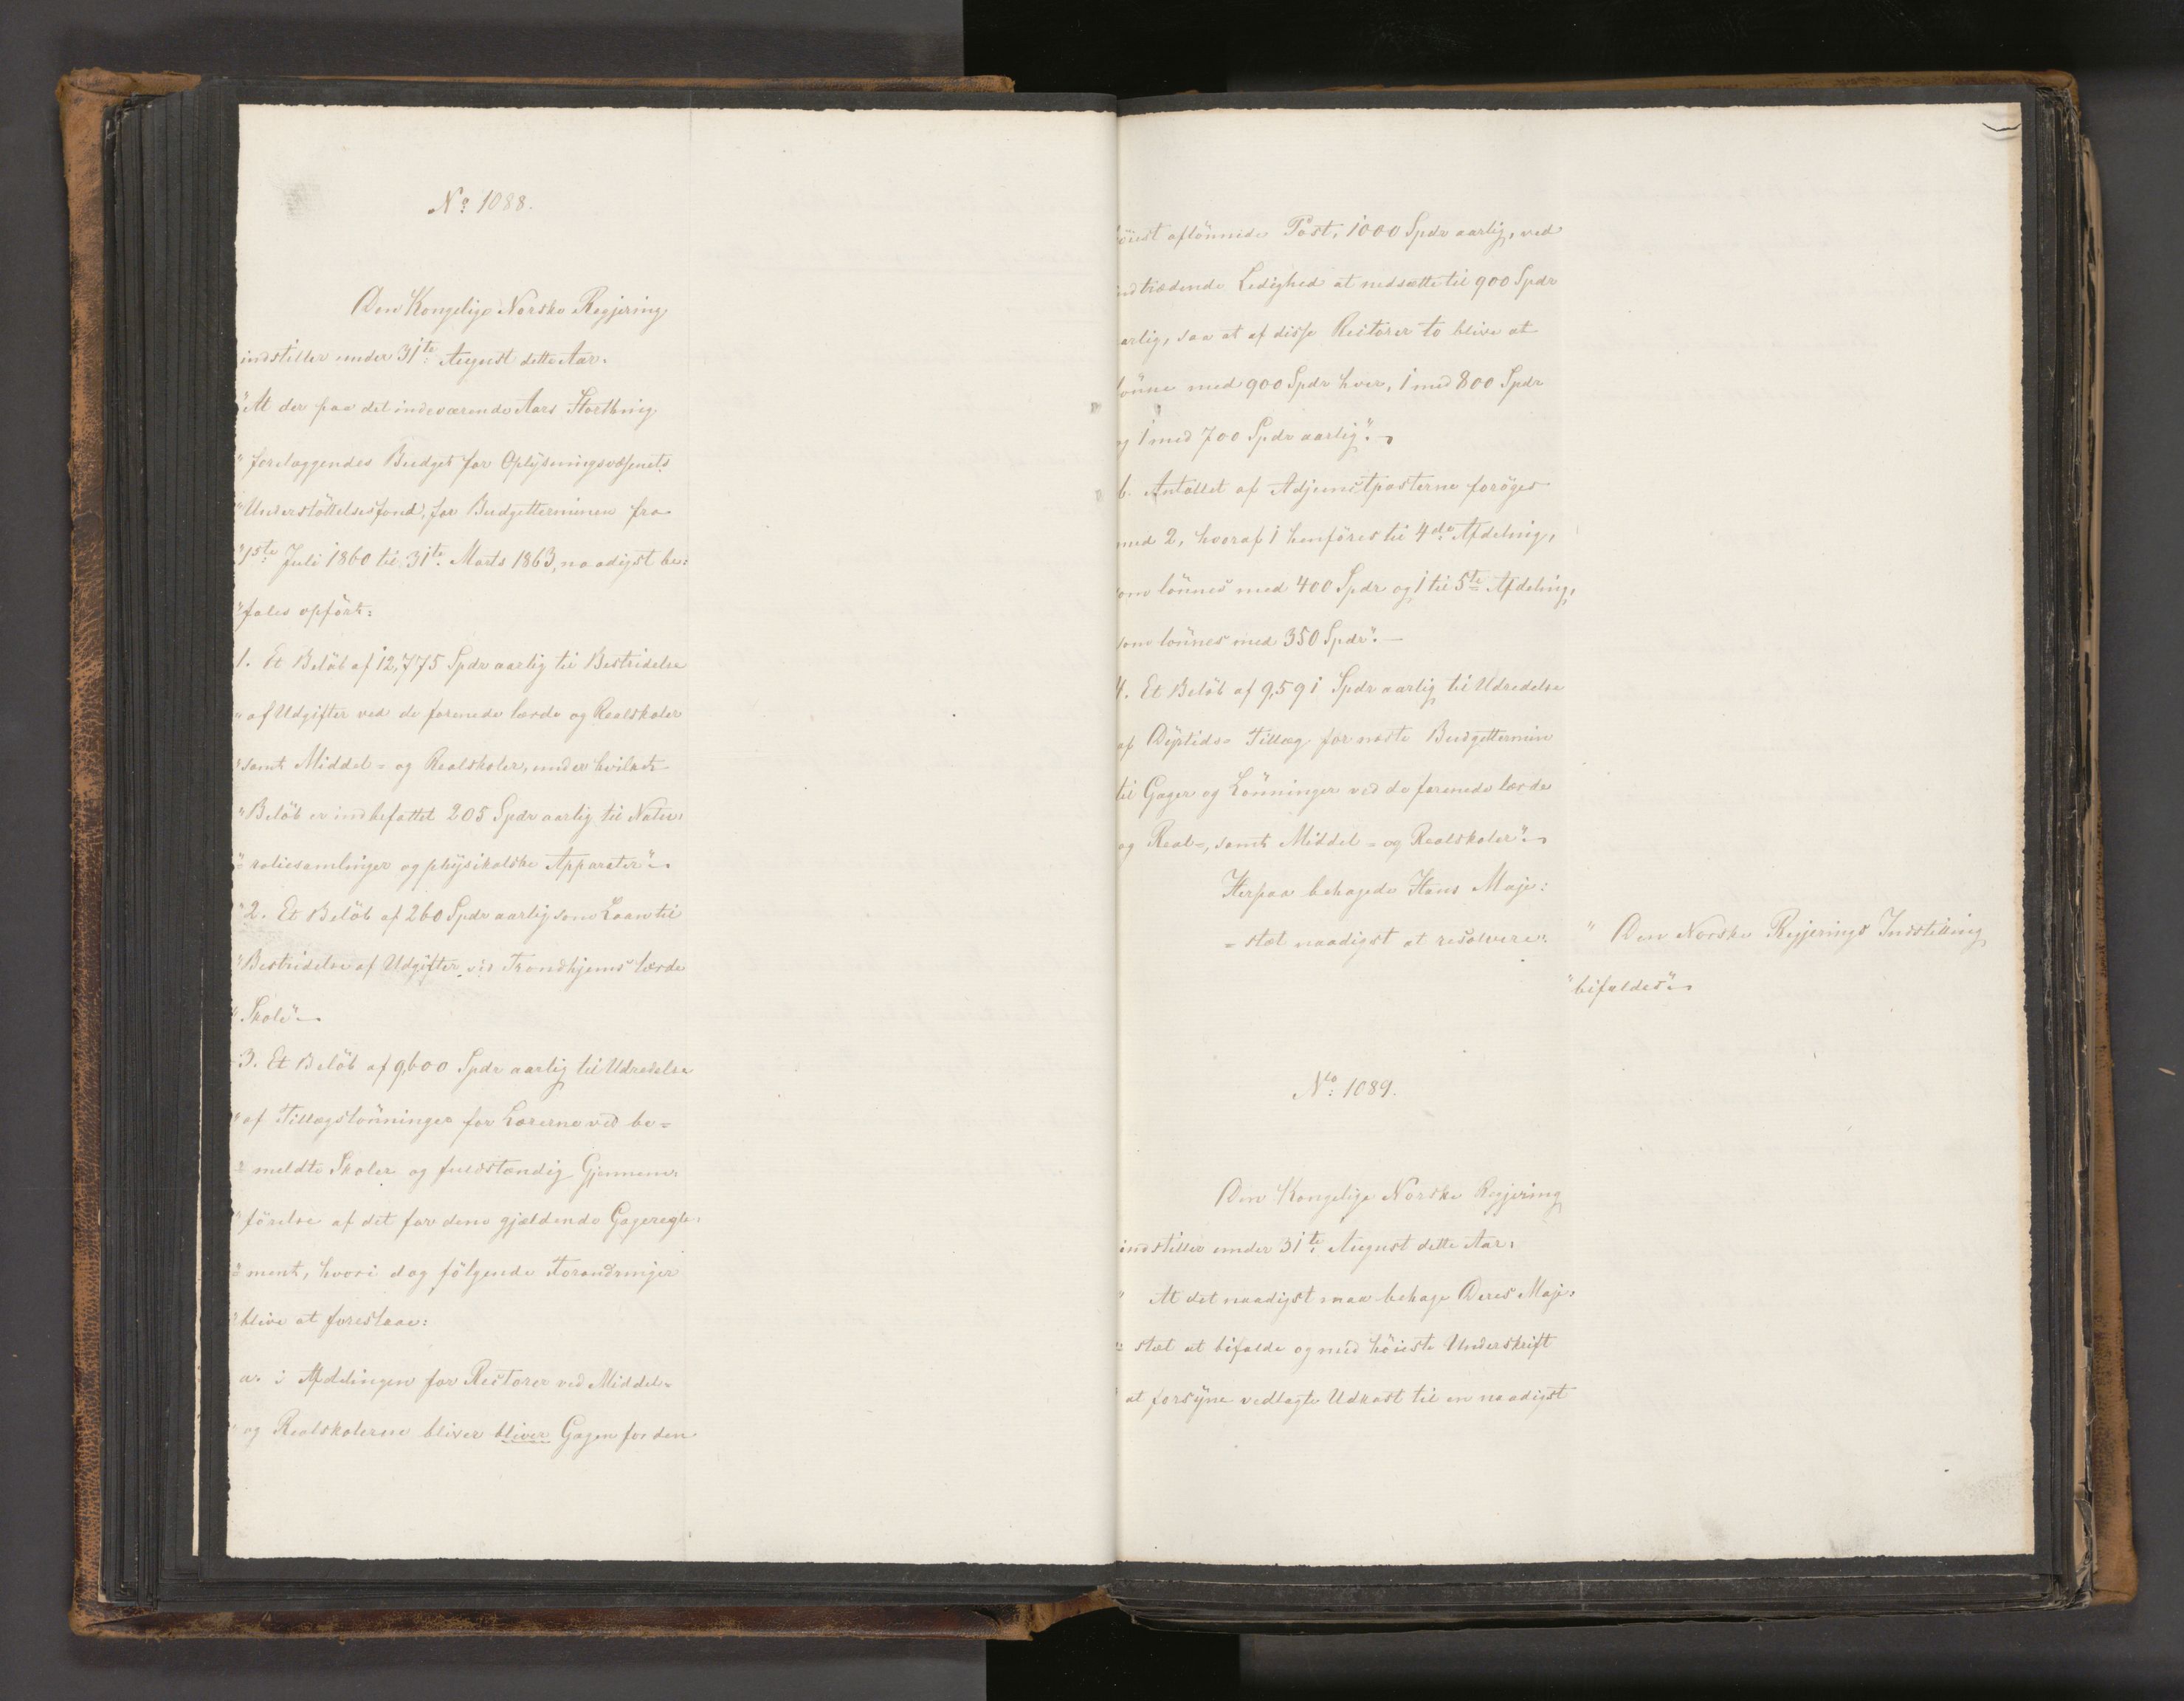 No: 1088.
Den Kongelige Norske Regjering
indstiller under 31te August dette Aar.
"At der paa det indeværende Aars Storthing
"forelæggendes Budget for Oplysningsvæsenets
"Understöttelsesfond, for Budgetterminen fra
"1ste Juli 1860 til 31te Marts 1863, naadigst be:
"fales opfört:
1. Et Belöb af 12,775 Spdr aarlig til Bestridelse
"af Udgifter ved de forenede lærde og Realskoler
"samt Middel= og Realskoler, under hvilket
"Belöb er indbefattet 205 Spdr aarlig til Natu:
"raliesamlinger og physikalske Apparater"
"2. Et Belöb af 260 Spdr aarlig som Laan til
"Bestridelse af Udgifter vid Trondhjems lærde
"Skole"
3. Et Belöb af 9,600 Spdr aarlig til Udredelse
"af Tillægslönninger for Lærerne ved be=
"meldte Skoler og fuldstændig Gjennem:
"förelse af det for dem gjældende Gageregle:
"ment, hvori dog fölgende Forandringer
"blive at foreslaae:
a. i Afdelingen for Rectorer ved Middel=
"og Realskolerne bliver bliver Gagen for den
höiest aflönnede Post, 1000 Spdr aarlig, ved
indtrædende Ledighed at nedsætte til 900 Spdr
aarlig, saa at af disse Rectorer to blive at
lönne med 900 Spdr hver, 1 med 800 Spdr
og 1 med 700 Spdr aarlig".
b. Antallet af Adjunctposterne foröges
med 2, hvoraf 1 henföres til 4de Afdeling,
som lönnes med 400 Spdr og 1 til 5te Afdeling,
som lönnes med 350 Spdr".
4. Et Belöb af 9,591 Spdr aarlig til Udredelse
af Dyrtids= Tillæg for næste Budgettermin
til Gager og Lönninger ved de forenede lærde
og Real=, samt Middel= og Realskoler"
Herpaa behagede Hans Maje:
=stæt naadigst at resolvere:
"Den Norske Regjerings Indstilling
"bifaldes"
No: 1089.
Den Kongelige Norske Regjering
indstiller under 31te August dette Aar,
"At det naadigst maa behage Deres Maje:
"stæt at bifalde og med höieste Underskrift
"at forsyne vedlagte Udkast til en naadigst